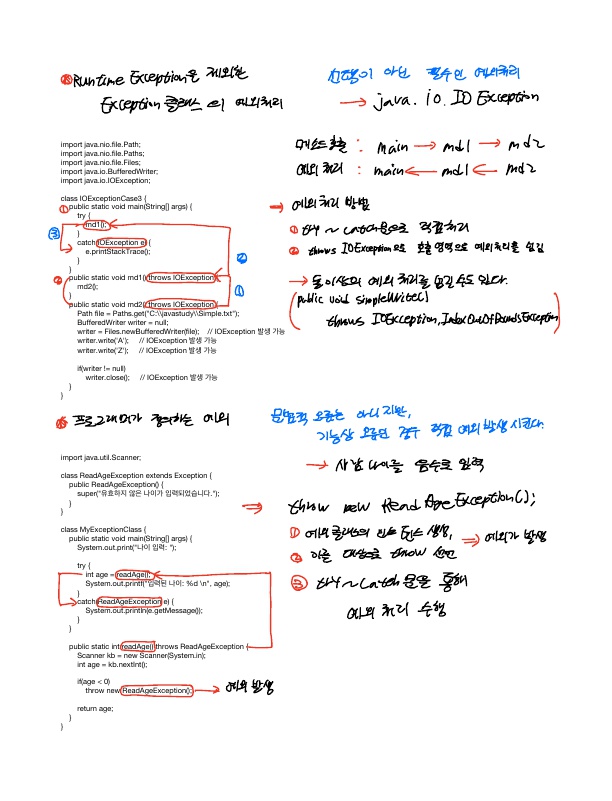 ※ Runtime Exception을 제외한
Exception클래스의 예외처리
선택이 아닌 필수인 예외처리
→ java.io.IOException
메소드호출 : main → md1 → md2
예외처리 : main ← md1 ← md2
import java.nio.file.Path;
import java.nio.file.Paths;
import java.nio.file.Files;
import java.io.BufferedWriter;
import java.io.IOException;
class IOExceptionCase3 {
① public static void main(String[] args) {
try {
md1();
}
③
catch(IOException e) {
e.printStackTrace();
}
}
②
② public static void md1() throws IOException {
md2();
①
}
public static void md2() throws IOException {
Path file = Paths.get("C:\\javastudy\\Simple.txt");
BufferedWriter writer = null;
writer = Files.newBufferedWriter(file); // IOException 발생 가능
writer.write('A'); // IOException 발생 가능
writer.write('Z'); // IOException 발생 가능
if(writer != null)
writer.close(); // IOException 발생 가능
}
}
→ 예외처리 방법
① try ~ catch문으로 직접처리
② throws IOException으로 호출영역으로 예외처리를 넘김
→ 둘이상의 예외처리를 넘길수도 있다.
public void simpleWrite()
throws IOException, IndexOutOfBoundsException
※ 프로그래머가 정의하는 예외
문법적 오류는 아니지만,
기능상 오류인 경우 직접 예외 발생시킨다.
→ 사람 나이를 음수로 입력
import java.util.Scanner;
class ReadAgeException extends Exception {
public ReadAgeException() {
super("유효하지 않은 나이가 입력되었습니다.");
}
}
class MyExceptionClass {
public static void main(String[] args) {
System.out.print("나이 입력: ");
try {
int age = readAge();
System.out.printf("입력된 나이: %d \n", age);
}
catch(ReadAgeException e) {
System.out.println(e.getMessage());
}
}
public static int readAge() throws ReadAgeException {
Scanner kb = new Scanner(System.in);
int age = kb.nextInt();
if(age < 0)
throw new ReadAgeException(); → 예외 발생
return age;
}
}
⇒ throw new ReadAgeException();
① 예외클래스의 인스턴스 생성,
⇒ 예외가 발생
② 이를 대상으로 throw 선언
③ try ~ catch 문을 통해
예외 처리 수행